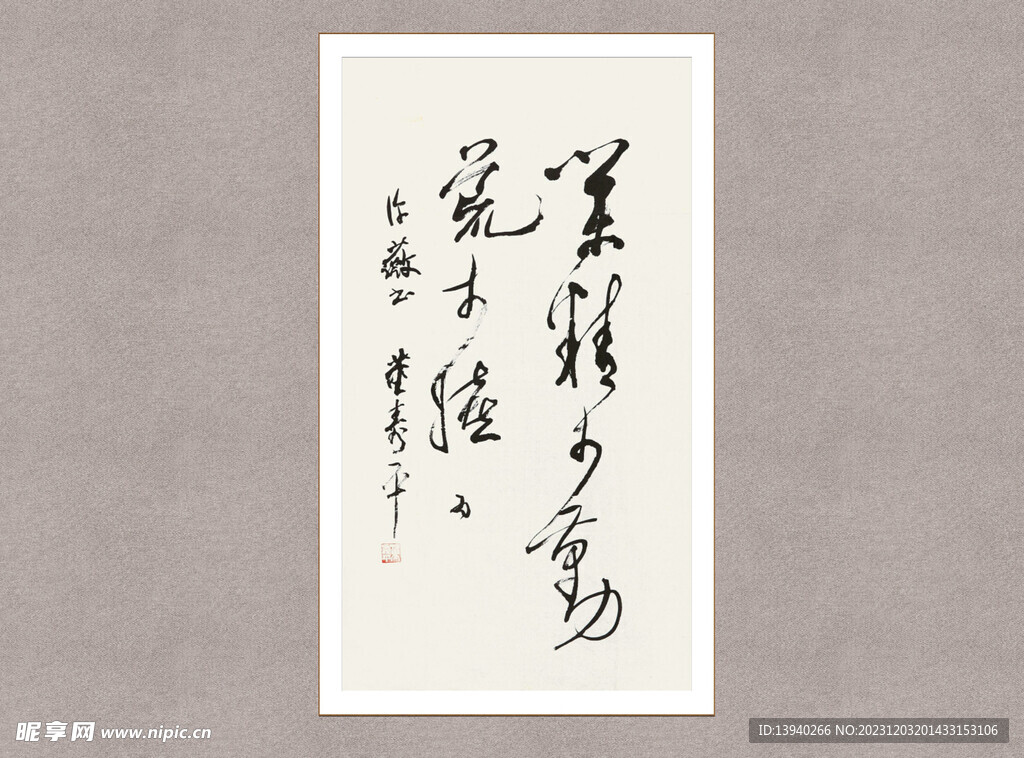 業精於勤
荒於嬉 为
许薇书 董寿平
昵享网 www.nipic.cn
ID:13940266 NO:20231203201433153106